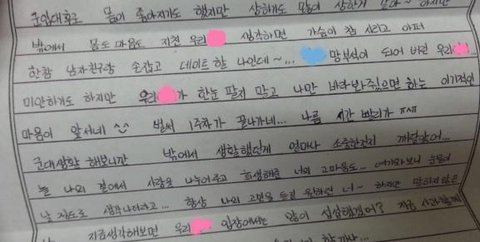 군입대후로 몸이 좋아지기도 했지만 상하기도 많이 상하거 같아~ 하지만
밖에서 몸도 마음도 지쳤 우리 생각하면 가슴이 참 시리고 아퍼
한참 남자친구랑 손잡고 데이트 할 나인데~... 망부석이 되어 버린 우리...
미안하기도 하지만 우리가 한눈 팔지 말고 나만 바라봐줬으면 하는 이기적인
마음이 앞서네 ^^ 벌써 1주차가 끝나가네... 나름 시간 빨리가 ㅠㅠ
군대생활 해보니깐 밖에서 생활했던게 얼마나 소중한건지 깨달았어...
늘 나의 곁에서 사랑을 나누어주고 희생해준 너의 고마움도... 여기와보니 눈물이
날 정도로 생각나더라고... 항상 나의 고민을 듣길 원하던 너~ 하지만 말하지않은
지금생각해보면 우리 입장에서는 많이 섭섭했겠어? 지금